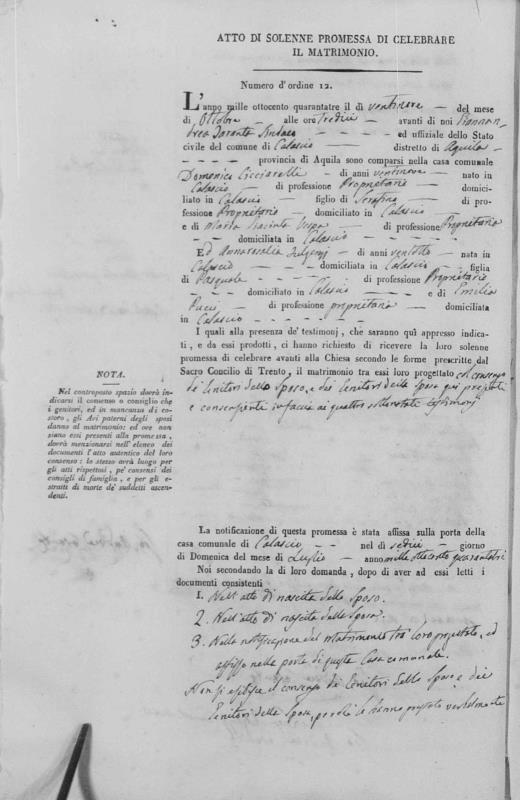 ATTO DI SOLENNE PROMESSA DI CELEBRARE
IL MATRIMONIO.
Numero d'ordine 12.
L'anno mille ottocento quarantatre il dì ventinove del mese
di Ottobre alle ore tredici avanti di noi
Sindaco ed uffiziale dello Stato
civile del comune di Calascio distretto di Aquila
provincia di Aquila sono comparsi nella casa comunale
Domenico Cicciarelli di anni ventinove nato in
Calascio di professione Proprietario domici-
liato in Calascio figlio di Serafino di pro-
fessione Proprietario domiciliato in Calascio
e di Maria Giacinta di professione Proprietaria
domiciliata in Calascio
Ed Annarosalia Fulgenzj di anni ventotto nata in
Calascio domiciliata in Calascio figlia
di Pasquale di professione Proprietario
domiciliato in Calascio e di Emilia
Pucci di professione proprietaria domiciliata
in Calascio
I quali alla presenza de' testimonj, che saranno quì appresso indica-
ti, e da essi prodotti, ci hanno richiesto di ricevere la loro solenne
promessa di celebrare avanti alla Chiesa secondo le forme prescritte dal
Sacro Concilio di Trento, il matrimonio tra essi loro progettato col consenso
de' Genitori dello Sposo, e dei Genitori della sposa qui presenti
e consenziente in faccia ai quattro sottonotati testimonj
NOTA.
Nel controposto spazio dovrà in-
dicarsi il consenso o consiglio che
i genitori, ed in mancanza di co-
storo, gli Avi paterni degli sposi
danno al matrimonio: ed ove non
siano essi presenti alla promessa,
dovrà menzionarsi nell'elenco dei
documenti l'atto autentico del loro
consenso: lo stesso avrà luogo per
gli atti rispettosi, pe' consensi dei
consigli di famiglia, e per gli e-
stratti di morte de' suddetti ascen-
denti.
La notificazione di questa promessa è stata affissa sulla porta della
casa comunale di Calascio nel dì sedici giorno
di Domenica del mese di Luglio anno mille ottocento quarantatre
Noi secondando la di loro domanda, dopo di aver ad essi letti i
documenti consistenti
1. Nell'atto di nascita dello Sposo.
2. Nell'atto di nascita della Sposa.
3. Nella notificazione del matrimonio tra loro progettato, ed
affissa nella porta di questa Casa comunale.
Non si esibisce il consenso dei Genitori dello Sposo e dei
Genitori della Sposa, perchè lo hanno prestato verbalmente